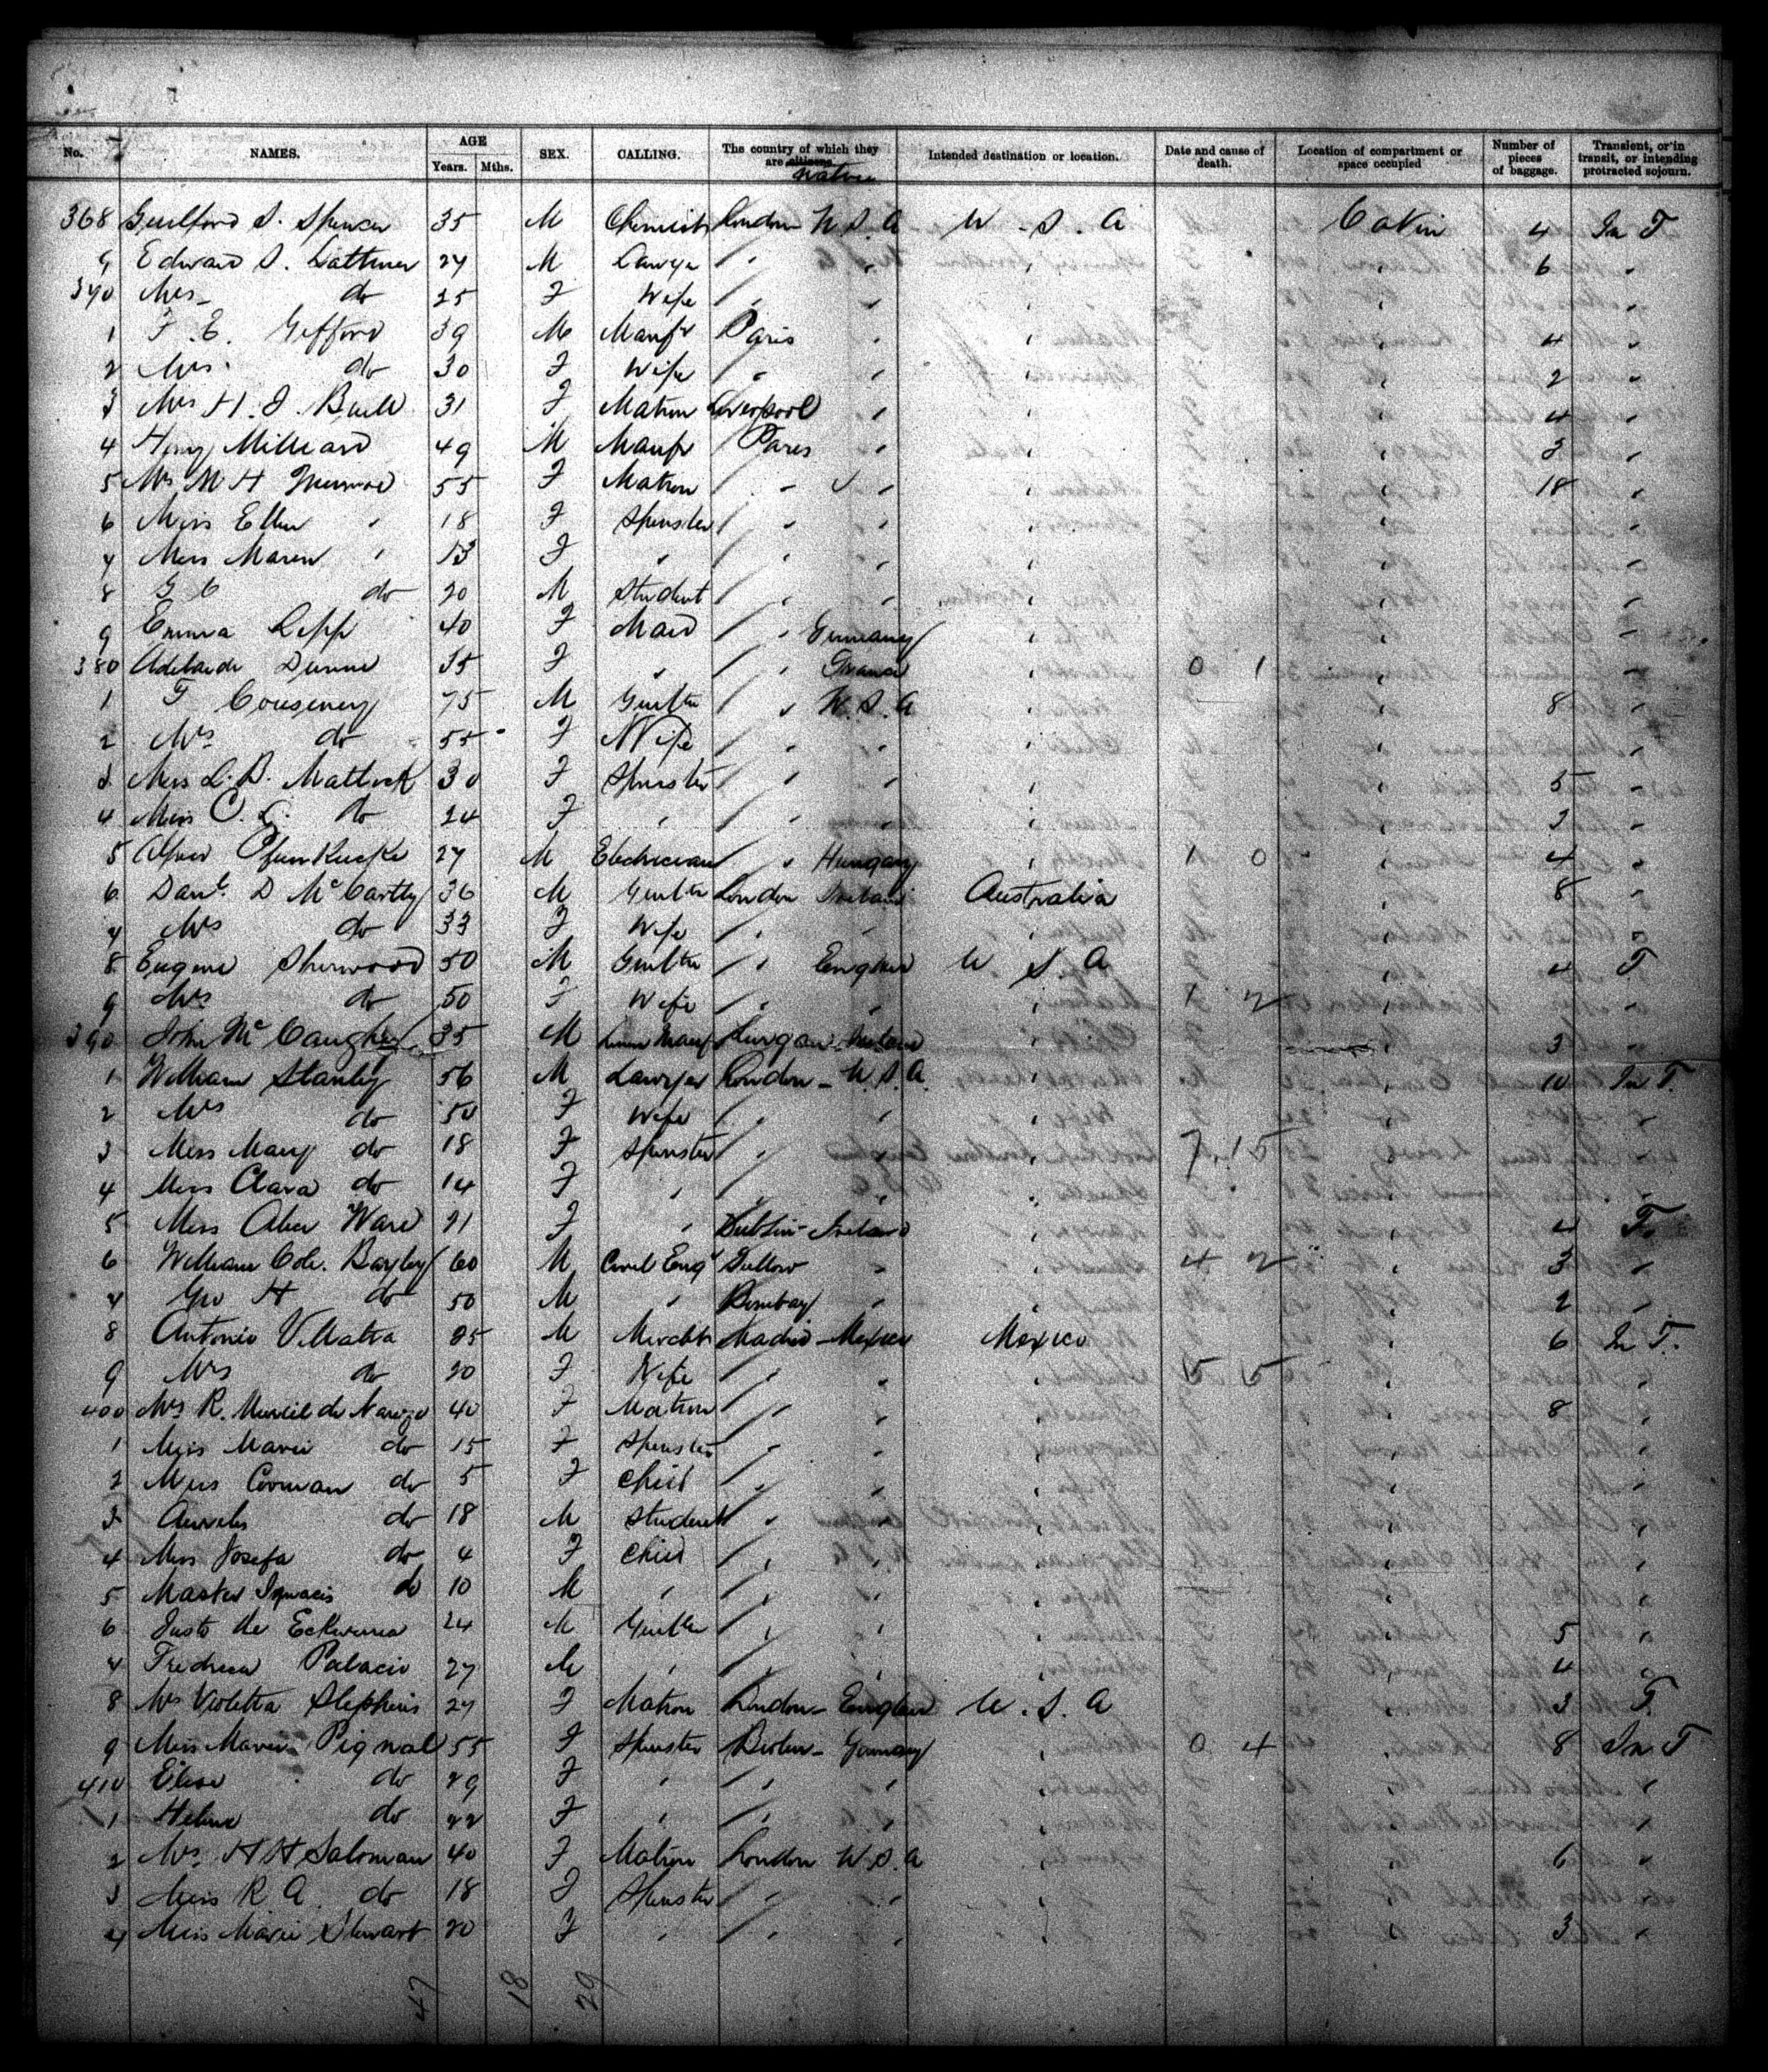 No. NAMES. AGE Years. Mths. SEX. CALLING. The country of which they are citizens. Native Intended destination or location. Date and cause of death. Location of compartment or space occupied Number of pieces of baggage. Transient, or in transit, or intending protracted sojourn.
368 Guilford S. Spencer 35 M Chemist London U S A U. S. A Cabin 4 In T
9 Edward S. 27 M Lawyer " " " " 6 "
370 Mrs do 25 F Wife " " " " "
1 F. E. Gifford 39 M Manfr Paris " " " 4 "
2 Mrs. do 30 F Wife " " " " 2 "
3 Mrs H. J. Buell 31 F Matron Liverpool " " " 4 "
4 Milliard 49 M Manfr Paris " " " 3 "
5 Mrs M H 55 F Matron " " " " 18 "
6 Miss Ellen " 18 F Spinster " " " " "
7 Miss Marion " 13 F " " " " " "
8 G C do 20 M Student " " " " "
9 Emma Lepp 40 F Maid " Germany " " "
380 Adelaide 35 F " " France " 0 1 " "
1 F Cousinery 75 M Gentln " U. S. A " " 8 "
2 Mrs do 55 F Wife " " " " "
3 Miss L. B. Matlock 30 F Spinster " " " " 5 "
4 Miss C. L. do 24 F " " " " " 3 "
5 Alfred 27 M Electrician " Hungary " 1 0 " 4 "
6 Danl. D McCarthy 36 M Gentln London Ireland Australia " 8 "
7 Mrs do 33 F Wife " " " " "
8 Eugene Sherwood 50 M Gentln " England U S. A " 4 T
9 Mrs do 50 F Wife " " " 1 2 " "
390 John McCaughey 35 M Linen Manfr Lurgan Ireland " 3 "
1 William Stanley 56 M Lawyer London - U. S. A. " " 10 In T.
2 Mrs do 50 F Wife " " " " "
3 Miss Mary do 18 F Spinster " " " 7. 15 " "
4 Miss Clara do 14 F " " " " " "
5 Miss Alice Ward 21 F " Dublin - Ireland " " 4 T.
6 William Cole. Bayley 60 M Civil Eng Tullow " " 4 2 " 3 "
7 Geo H do 50 M " Bombay " " " 2 "
8 Antonio 25 M Mercht Madrid - Mexico Mexico " 6 In T.
9 Mrs do 20 F Wife " " " 5 5 " "
400 Mrs R. 40 F Matron " " " " 8 "
1 Miss Marie do 15 F Spinster " " " " "
2 Miss do 5 F Child " " " " "
3 do 18 M Student " " " " "
4 Miss Josefa do 4 F Child " " " " "
5 Master Ignacio do 10 M " " " " " "
6 Justo de 24 M Gentln " " " " 5 "
7 Palacio 27 M " " " " " 4 "
8 Mrs Violetta Stephens 27 F Matron London - England U. S. A " 3 T.
9 Miss Marie Pignal 55 F Spinster Berlin - Germany " 0 4 " 8 In T
410 Elise do 29 F " " " " " "
1 Helene do 22 F " " " " " "
2 Mrs. H H Saloman 40 F Matron London U. S. A " " 6 "
3 Miss R A. do 18 F Spinster " " " " "
4 Miss Marie Stewart 20 F " " " " " 3 "
47 18 29